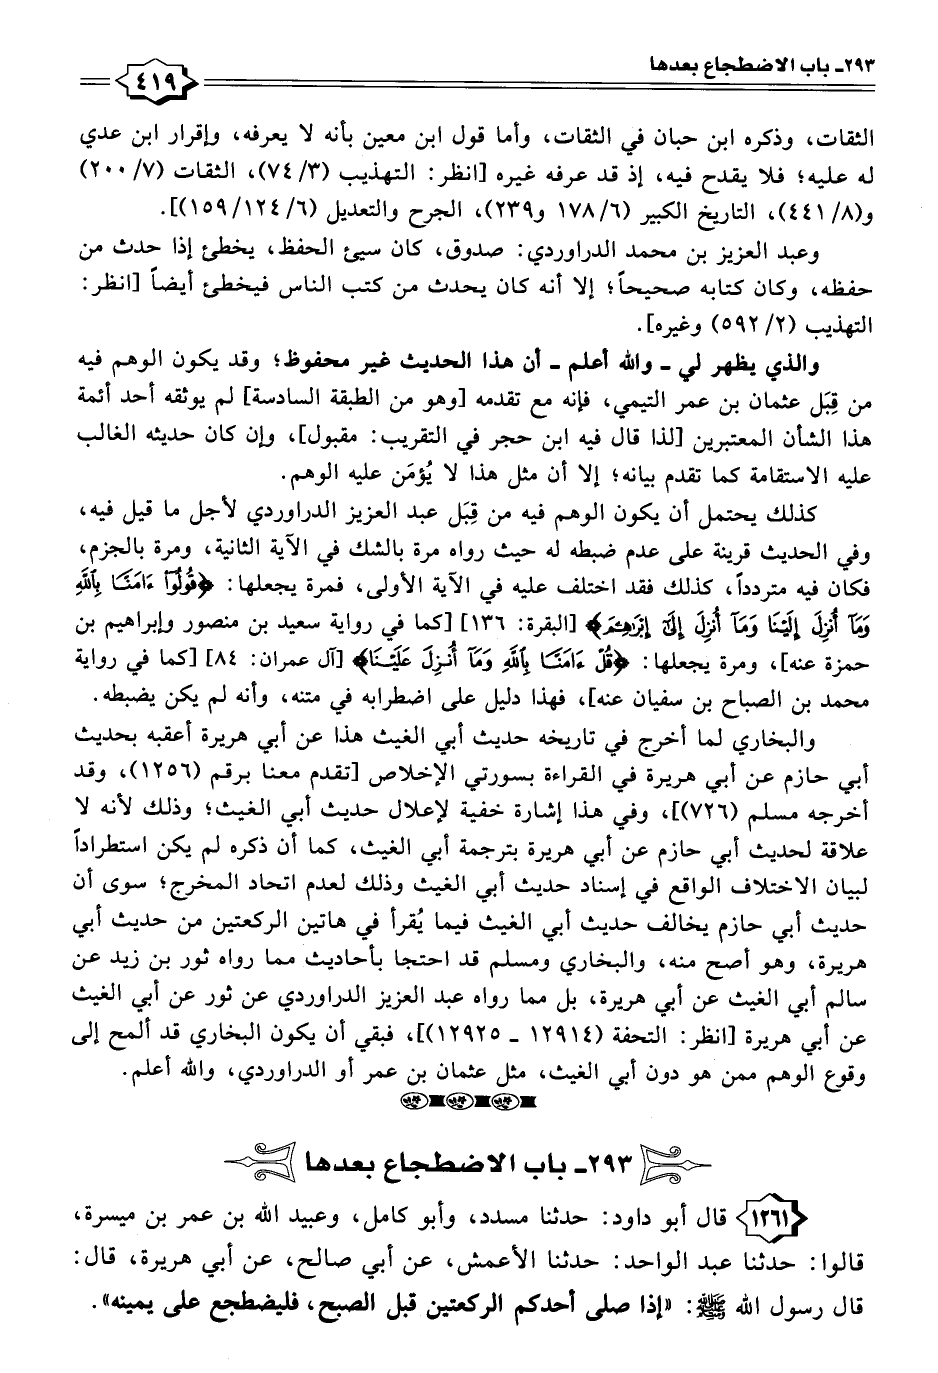 ٢٩٣ـ باب الاضطجاع بعدها
٤١٩
الثقات، وذكره ابن حبان في الثقات، وأما قول ابن معين بأنه لا يعرفه، وإقرار ابن عدي
له عليه؛ فلا يقدح فيه، إذ قد عرفه غيره [انظر: التهذيب (٧٤/٣)، الثقات (٢٠٠/٧)
و(٤٤١/٨)، التاريخ الكبير (١٧٨/٦ و٢٣٩)، الجرح والتعديل (١٥٩/١٢٤/٦)].
وعبد العزيز بن محمد الدراوردي: صدوق، كان سيئ الحفظ، يخطئ إذا حدث من
حفظه، وكان كتابه صحيحاً؛ إلا أنه كان يحدث من كتب الناس فيخطئ أيضاً [انظر:
التهذيب (٥٩٢/٢) وغيره].
والذي يظهر لي ـ والله أعلم ـ أن هذا الحديث غير محفوظ؛ وقد يكون الوهم فيه
من قِبَل عثمان بن عمر التيمي، فإنه مع تقدمه [وهو من الطبقة السادسة] لم يوثقه أحد أئمة
هذا الشأن المعتبرين [لذا قال فيه ابن حجر في التقريب: مقبول]، وإن كان حديثه الغالب
عليه الاستقامة كما تقدم بيانه؛ إلا أن مثل هذا لا يُؤمَن عليه الوهم.
كذلك يحتمل أن يكون الوهم فيه من قِبَل عبد العزيز الدراوردي لأجل ما قيل فيه،
وفي الحديث قرينة على عدم ضبطه له حيث رواه مرة بالشك في الآية الثانية، ومرة بالجزم،
فكان فيه متردداً، كذلك فقد اختلف عليه في الآية الأولى، فمرة يجعلها: ﴿قُولُوٓا۟ ءَامَنَّا بِٱللَّهِ
وَمَآ أُنزِلَ إِلَيْنَا وَمَآ أُنزِلَ إِلَىٰٓ إِبْرَٰهِـۧمَ﴾ [البقرة: ١٣٦] [كما في رواية سعيد بن منصور وإبراهيم بن
حمزة عنه]، ومرة يجعلها: ﴿قُلْ ءَامَنَّا بِٱللَّهِ وَمَآ أُنزِلَ عَلَيْنَا﴾ [آل عمران: ٨٤] [كما في رواية
محمد بن الصباح بن سفيان عنه]، فهذا دليل على اضطرابه في متنه، وأنه لم يكن يضبطه.
والبخاري لما أخرج في تاريخه حديث أبي الغيث هذا عن أبي هريرة أعقبه بحديث
أبي حازم عن أبي هريرة في القراءة بسورتي الإخلاص [تقدم معنا برقم (١٢٥٦)، وقد
أخرجه مسلم (٧٢٦)]، وفي هذا إشارة خفية لإعلال حديث أبي الغيث؛ وذلك لأنه لا
علاقة لحديث أبي حازم عن أبي هريرة بترجمة أبي الغيث، كما أن ذكره لم يكن استطراداً
لبيان الاختلاف الواقع في إسناد حديث أبي الغيث وذلك لعدم اتحاد المخرج؛ سوى أن
حديث أبي حازم يخالف حديث أبي الغيث فيما يُقرأ في هاتين الركعتين من حديث أبي
هريرة، وهو أصح منه، والبخاري ومسلم قد احتجا بأحاديث مما رواه ثور بن زيد عن
سالم أبي الغيث عن أبي هريرة، بل مما رواه عبد العزيز الدراوردي عن ثور عن أبي الغيث
عن أبي هريرة [انظر: التحفة (١٢٩١٤ ـ ١٢٩٢٥)]، فبقي أن يكون البخاري قد ألمح إلى
وقوع الوهم ممن هو دون أبي الغيث، مثل عثمان بن عمر أو الدراوردي، والله أعلم.
٢٩٣ـ باب الاضطجاع بعدها
١٢٦١ قال أبو داود: حدثنا مسدد، وأبو كامل، وعبيد الله بن عمر بن ميسرة،
قالوا: حدثنا عبد الواحد: حدثنا الأعمش، عن أبي صالح، عن أبي هريرة، قال:
قال رسول الله ﷺ: «إذا صلى أحدكم الركعتين قبل الصبح، فليضطجع على يمينه».